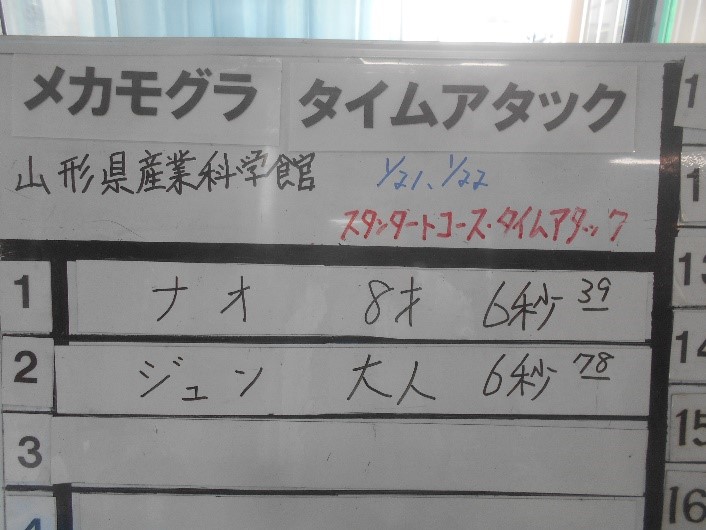 メカモグラ タイムアタック
山形県産業科学館 1/21、1/22
スタンダートコース・タイムアタック
1 ナオ 8才 6秒39
2 ジュン 大人 6秒78
3
4
1
1
13
14
15
16